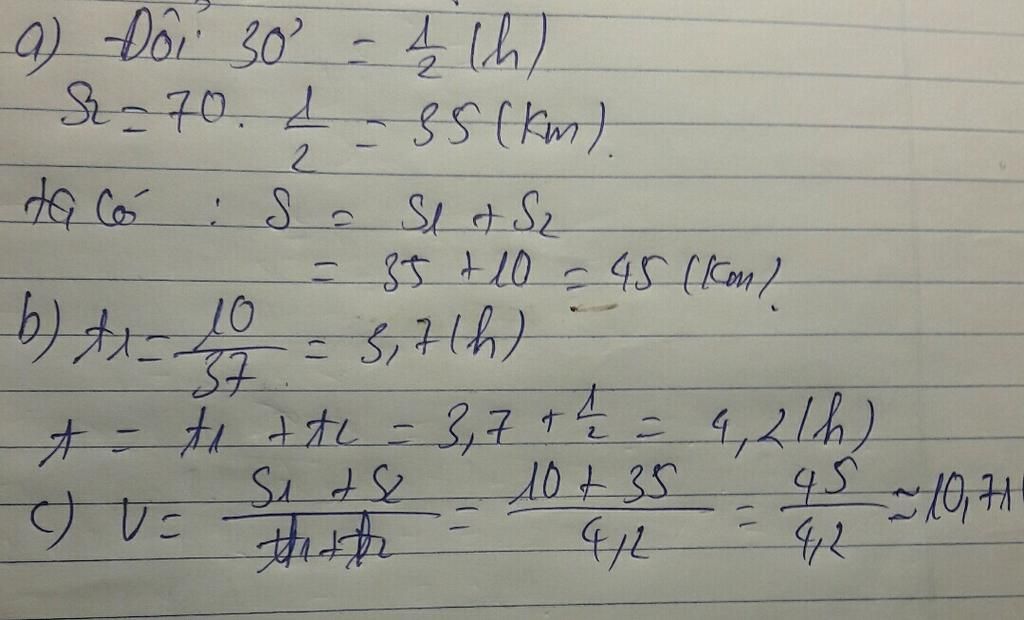 a) Đôỉ 30' = 1/2 (h)
S2 = 70. 1/2 = 35 (Km).
ta có : S = S1 + S2
= 35 + 10 = 45 (Km).
b) t1 = 10/37 = 3,7 (h)
t = t1 + t2 = 3,7 + 1/2 = 4,2 (h)
c) V = S1 + S2 / t1 + t2 = 10 + 35 / 4,2 = 45 / 4,2 ≈ 10,71